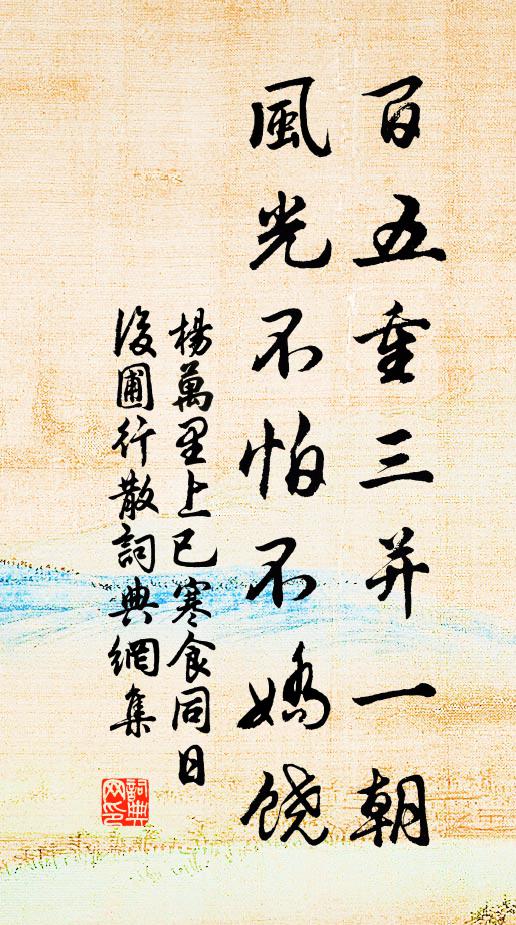 百五重三并一朝
風光不怕不嬌饒
楊萬里上巳寒食同日
後圃行散詞典網集
詞典網印